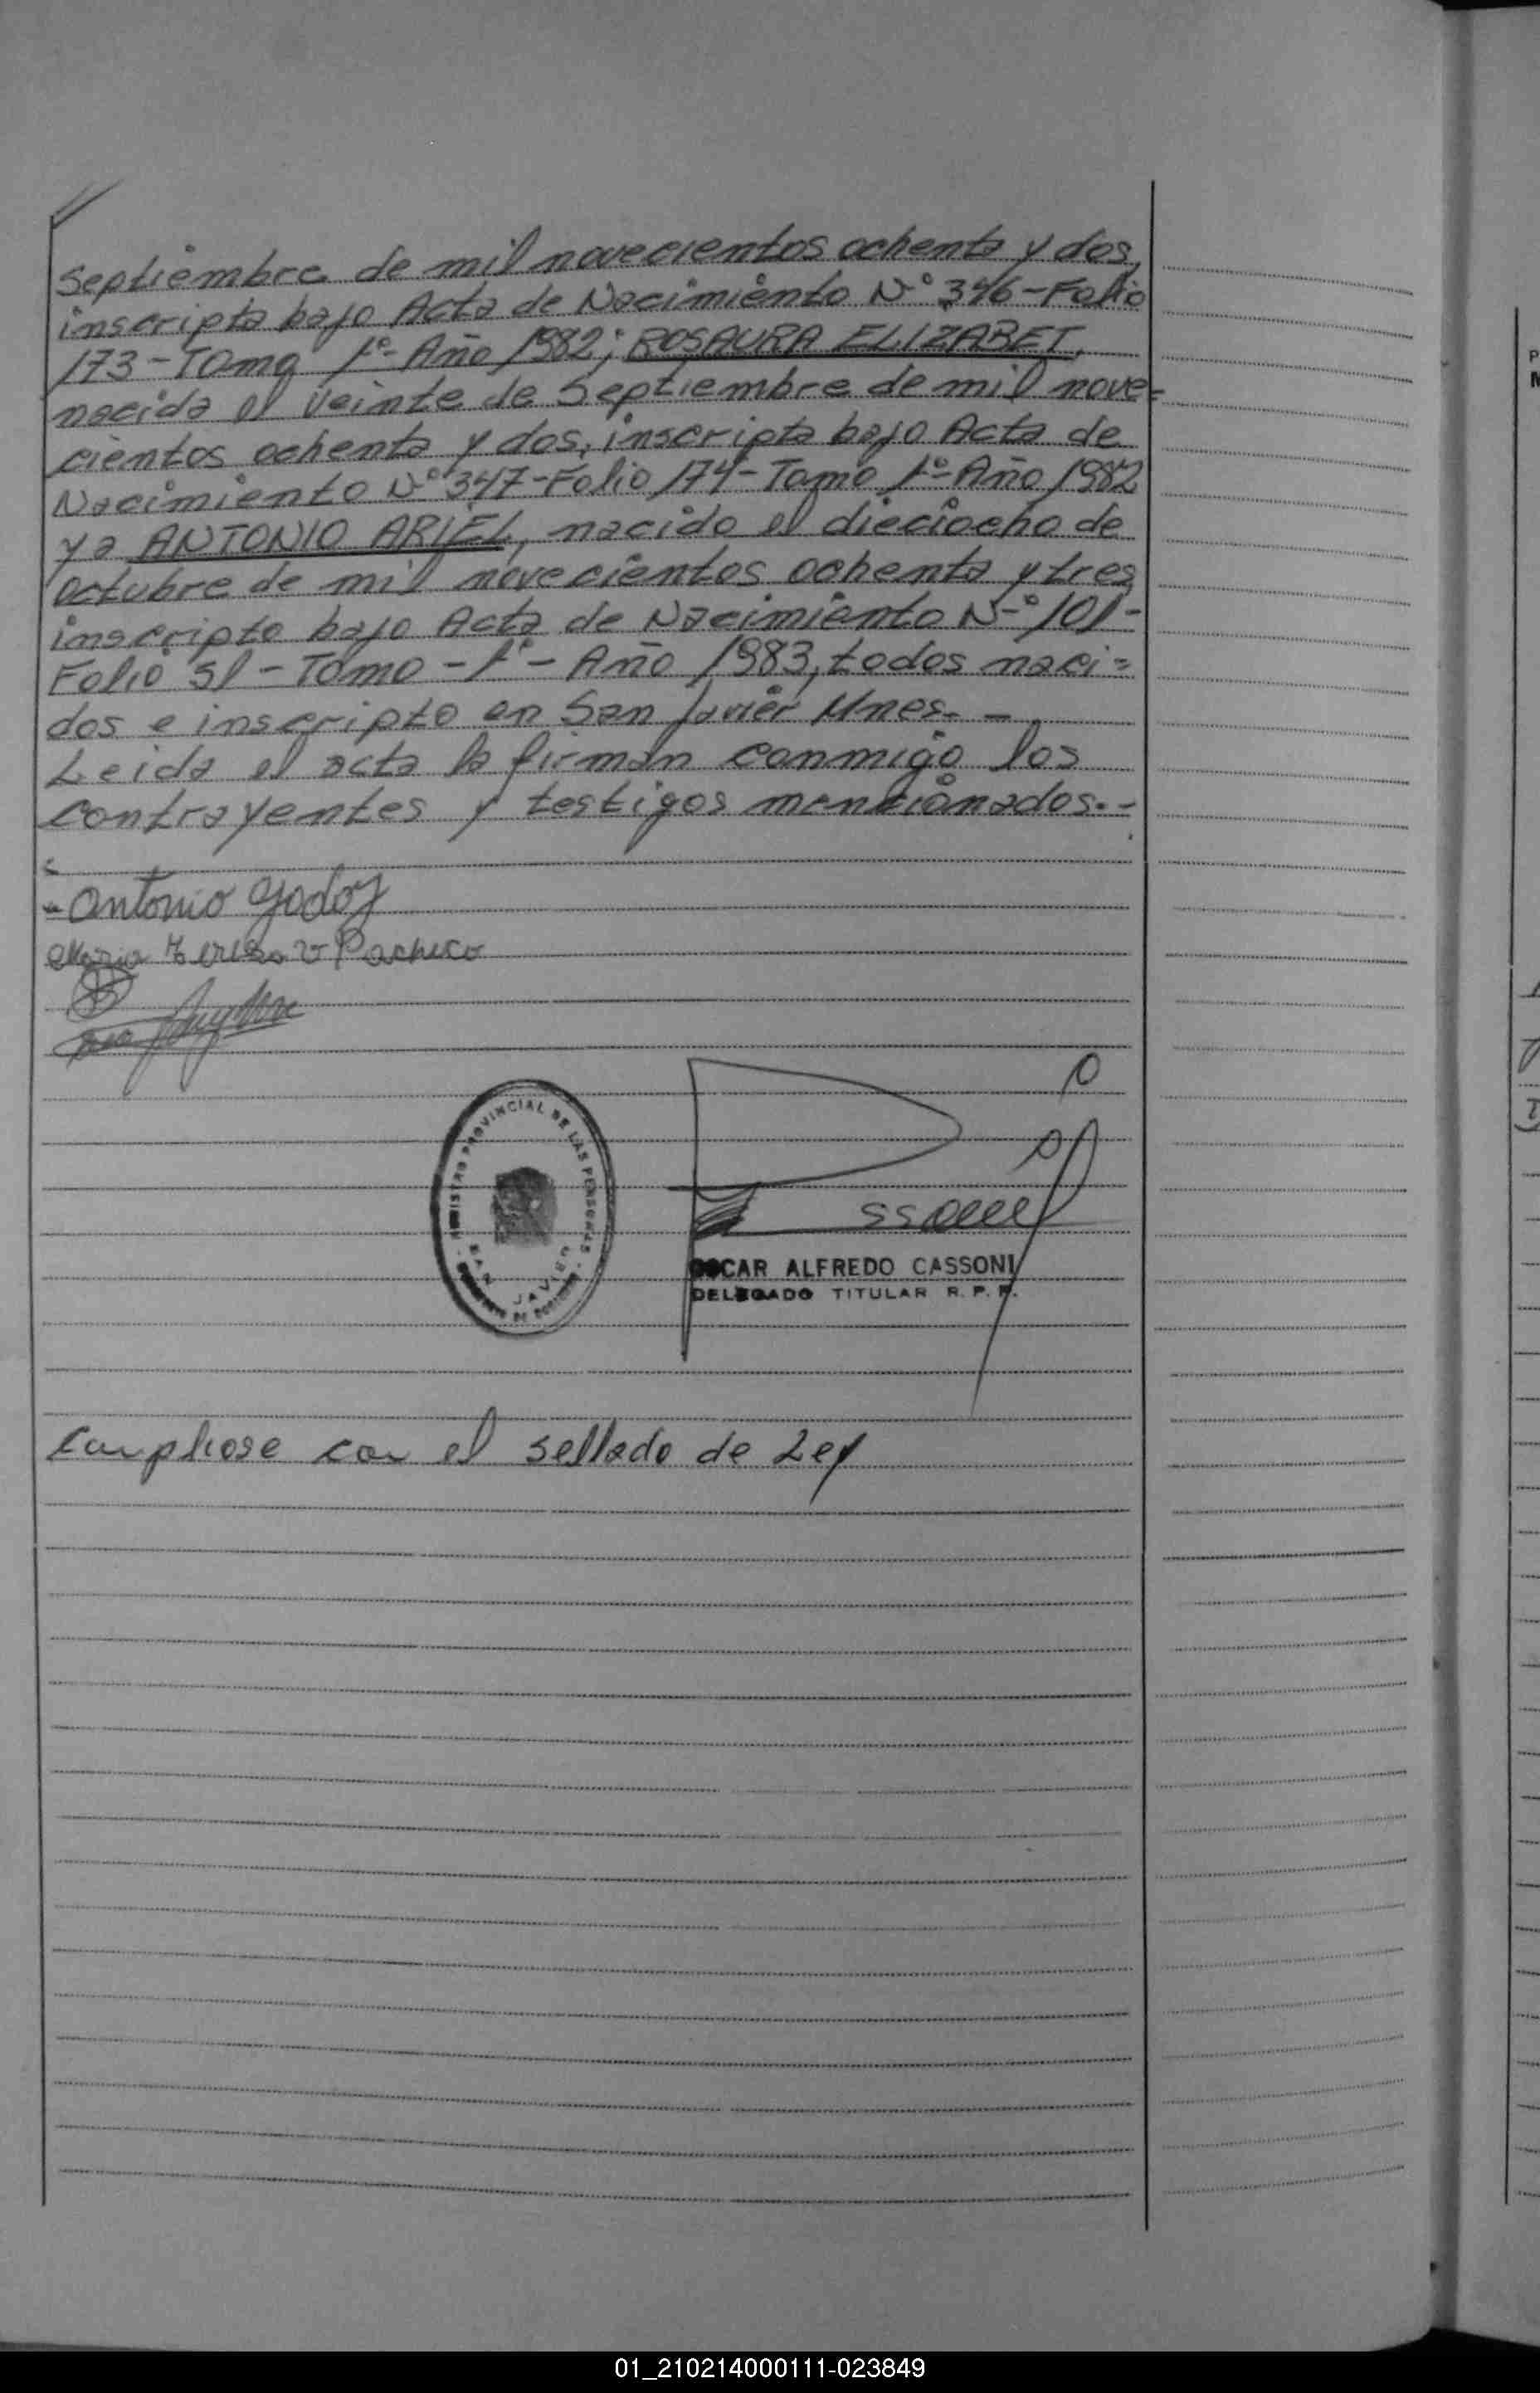 Septiembre de mil novecientos ochenta y dos,
inscripta bajo Acta de Nacimiento N° 346-Folio
173-Tomo 1°-Año 1982; ROSAURA ELIZABET,
nacida el veinte de Septiembre de mil nove=
cientos ochenta y dos, inscripta bajo Acta de
Nacimiento N° 347-Folio 174-Tomo 1°-Año 1982
y a ANTONIO ARIEL, nacido el dieciocho de
octubre de mil novecientos ochenta y tres
inscripto bajo Acta de Nacimiento N° 101-
Folio 51-Tomo-1°-Año 1983, todos naci=
dos e inscripto en San Javier Mnes.-
Leida el acta la firman conmigo los
contrayentes y testigos mencionados.-
Antonio Godoy
Maria Teresa V Pacheco
REGISTRO PROVINCIAL DE LAS PERSONAS
SAN JAVIER
OSCAR ALFREDO CASSONI
DELEGADO TITULAR R. P. P.
Cumpliose con el sellado de Ley
P
01_210214000111-023849